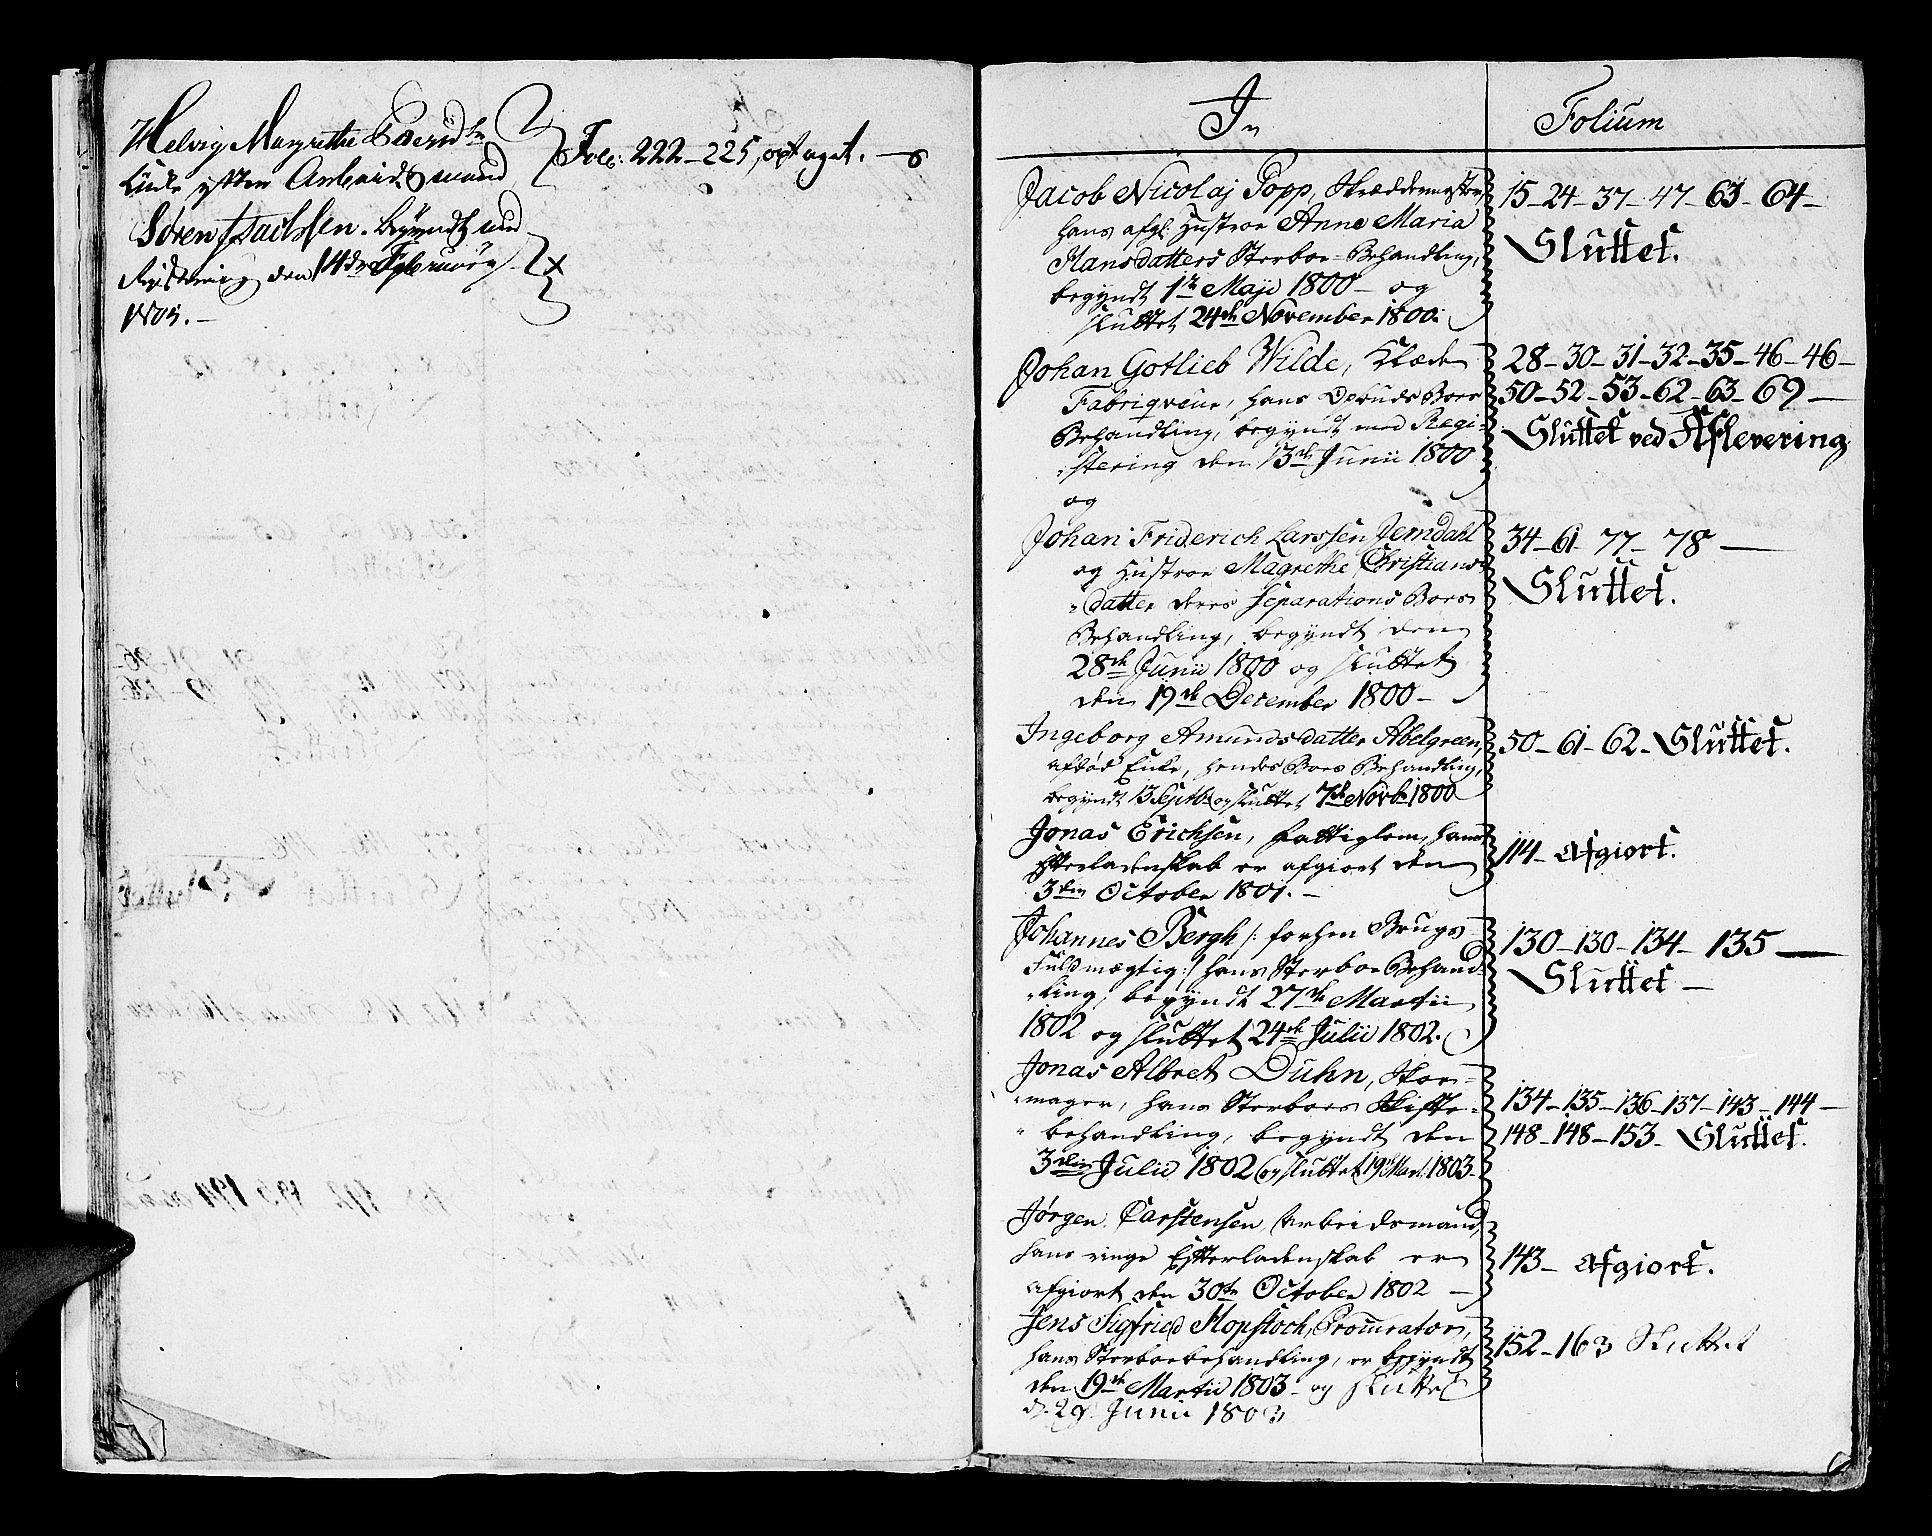 Helvig Margrethe
Enke efter Arbeidsmand
Søren Isachsen. begyndt med
Registering den 14de Februar
1805.
Fol: 222-225, optaget.
J
Folium
Jacob Nicolaj Popp, Skræddermester,
hans afg: Hustroe Anne Maria
Hansdatters Sterboe-Behandling,
begyndt 1te Maji 1800 - og
sluttet 24de November 1800.
15-24-37-47-63-64-
Sluttet.
Johan Gotlieb Wilde, Klæde
Fabriqveur, hans Boes
Behandling, begyndt med Regi-
stering den 13de Junii 1800
og
28-30-31-32-35-46-46-
50-52-53-62-63-69-
Sluttet ved Aflevering
Johan Friderich Larssen Jerndahl
og Hustroe Magrethe Christians-
datter deres Separations Boes
Behandling, begyndt den
28de Junii 1800 og sluttet
den 19de December 1800-
34-61-77-78-
Sluttet.
Ingeborg Amundsdatter Abelgreen,
afdød Enke, hendes Boes Behandling,
begyndt 13 Septbr og sluttet 7de Novbr 1800
50-61-62-Sluttet.
Jonas Erichsen, Fattiglem, hans
Efterladenskab er afgiort den
3die October 1801.-
114- Afgiort.
Johannes Bergh /: forhen Brugs-
Fuldmægtig:/ hans Sterboe Behand-
ling, begyndt 27de Martii
1802 og sluttet 24de Julii 1802.
130-130-134-135-
Sluttet-
Jonas Albret Duhn, Skoe-
mager, hans Sterboes Skifte-
behandling, begyndt den
3die Julii 1802 og sluttet 19 Mart: 1803-
134-135-136-137-143-144-
148-148-153- Sluttet.
Jørgen Carstensen Arbeidsmand,
hans ringe Efterladenskab er
afgiort den 30te October 1802 -
143- Afgiort.
Jens Sigfried Klopstoch, Procurator,
hans Sterboebehandling, er begyndt
den 19de Martii 1803- og sluttet
d. 29 Junii 1803
152-163 Sluttet